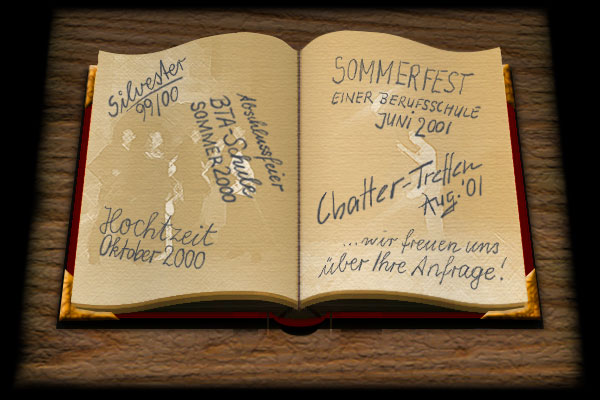 Silvester
99/00
Abschlussfeier
BTA-Schule
SOMMER 2000
Hochtzeit
Oktober 2000
SOMMERFEST
EINER BERUFSSCHULE
JUNI 2001
Chatter-Treffen
Aug. '01
...wir freuen uns
über Ihre Anfrage!